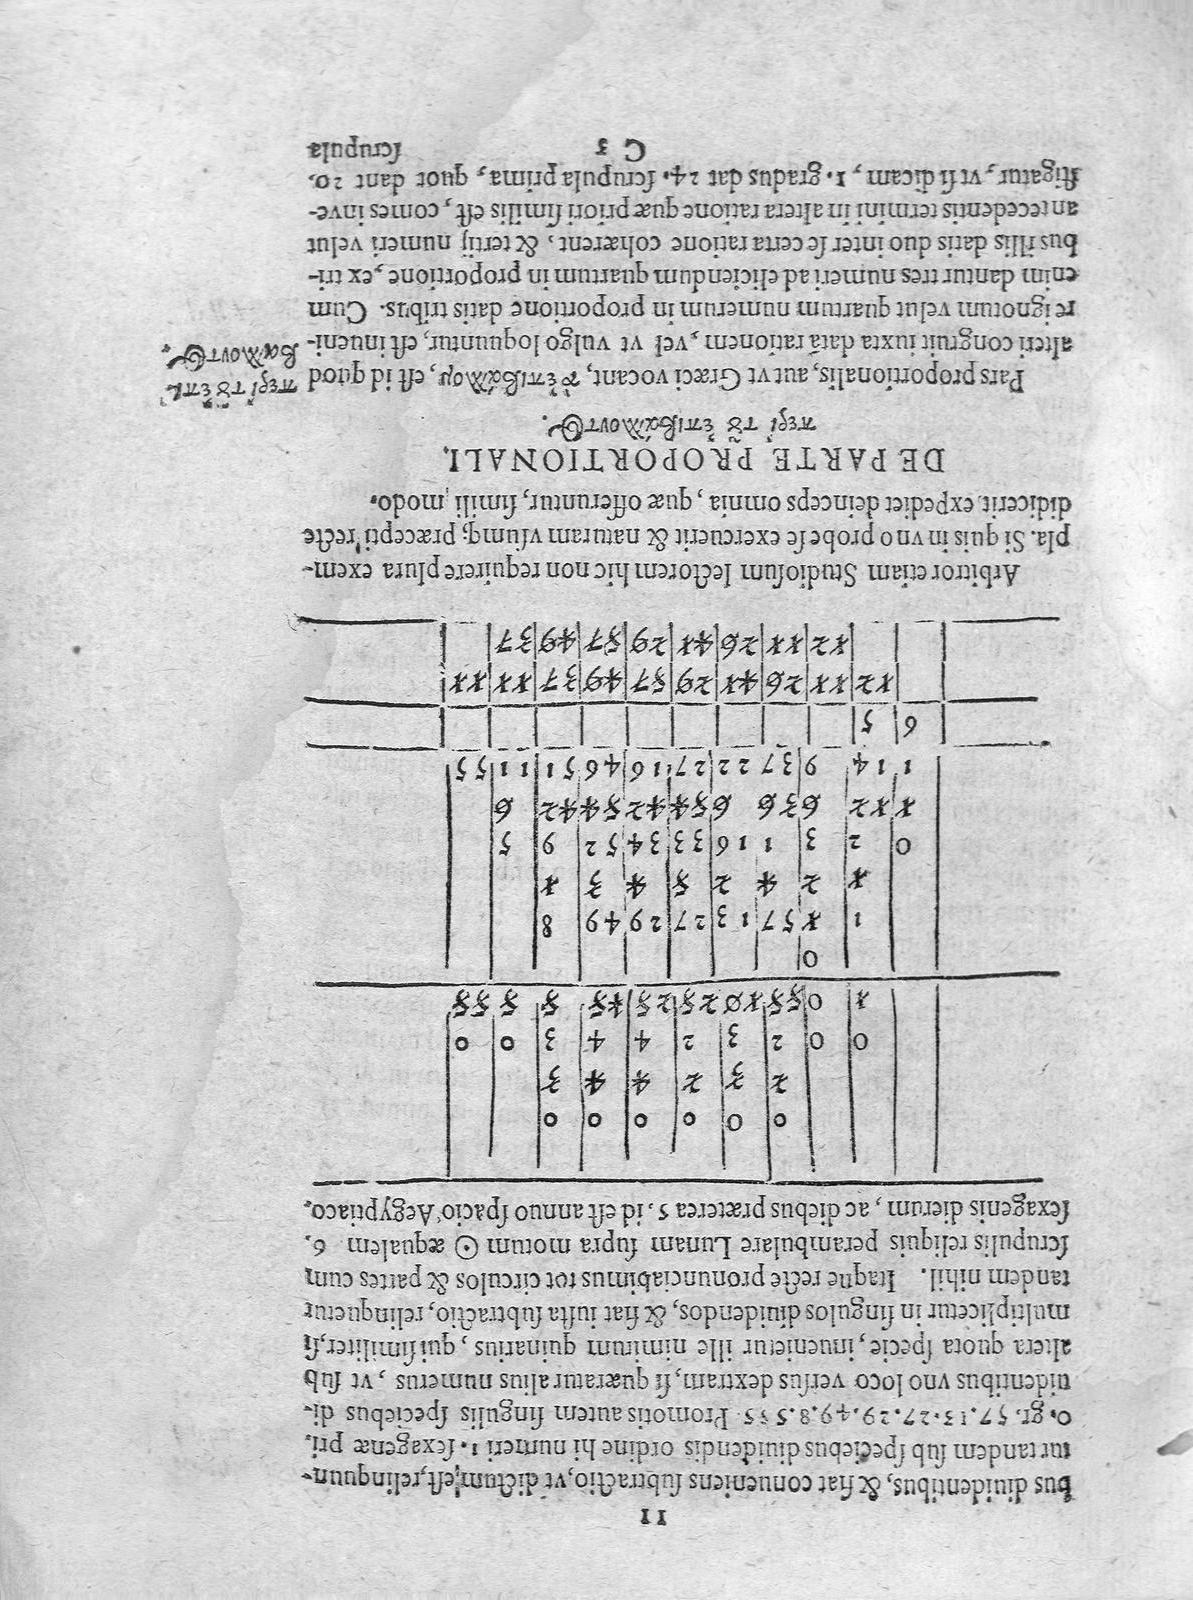 11
bus diuidentibus, & fiat conueniens subtractio, vt dictum est, relinquun-
tur tandem sub speciebus diuidendis ordine hi numeri 1. sexagenæ pri.
0. gr. 57. 13. 27. 29. 49. 8. 5 55 Promotis autem singulis speciebus di-
uidentibus vno loco versus dextram, si quæratur alius numerus, vt sub
altera quota specie, inuenietur ille nimirum quinarius, qui similiter, si
multiplicetur in singulos diuidendos, & fiat iusta subtractio, relinquetur
tandem nihil. Itaque recte pronunciabimus tot circulos & partes cum
scrupulis reliquis perambulare Lunam supra motum ☉ æqualem 6.
sexagenis dierum, ac diebus præterea 5. id est annuo spacio Aegyptiaco.
0 0 0 0 0 0
2 3 2 4 4 3
0 0 2 3 2 4 4 3 0 0
1 0 55 10 25 25 45 5 5 55
0
1 1 57 13 27 29 49 8
1 2 4 2 5 4 3 1
0 2 3 1 16 33 34 52 9 5
1 12 6 36 6 54 42 54 42 6
1 14 9 37 22 27 16 46 51 11 55
6 5
12 11 26 41 29 57 49 37 11 11
12 11 26 41 29 57 49 37
Arbitror etiam Studiosum lectorem hic non requirere plura exem-
pla. Si quis in vno probe se exercuerit & naturam vsumq; præcepti recte
didicerit, expediet deinceps omnia, quæ offeruntur, simili modo.
DE PARTE PROPORTIONALI,
περὶ τοῦ ἐπιβάλλοντος.
Pars proportionalis, aut vt Græci vocant, τὸ ἐπιβάλλον, est id quod
περὶ τοῦ ἐπι-
βάλλοντος.
alteri congruit iuxta datā rationem, vel vt vulgo loquuntur, est inueni-
re ignotum velut quartum numerum in proportione datis tribus. Cum
enim dantur tres numeri ad eliciendum quartum in proportione, ex tri-
bus illis datis duo inter se certa ratione cohærent, & tertij numeri velut
antecedentis termini in altera ratione quæ priori similis est, comes inve-
stigatur, vt si dicam, 1. gradus dat 24. scrupula prima, quot dant 20.
C 3
scrupula